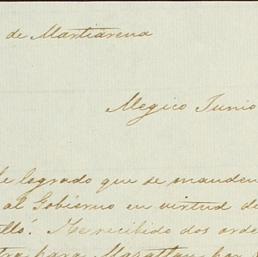 de Martiarena
Megico Junio
He logrado que se manden
al Gobierno en virtud de
lló. He recibido dos orde
para Mazatlan, por